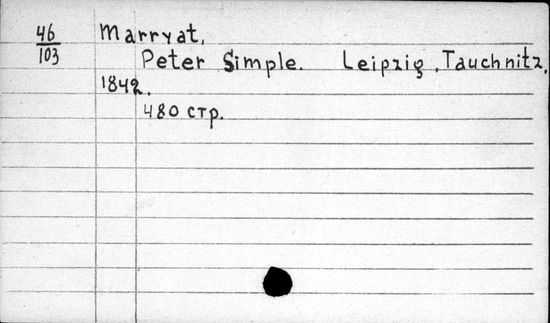 46
103
Marryat,
Peter Simple. Leipzig, Tauchnitz,
1842.
480 стр.